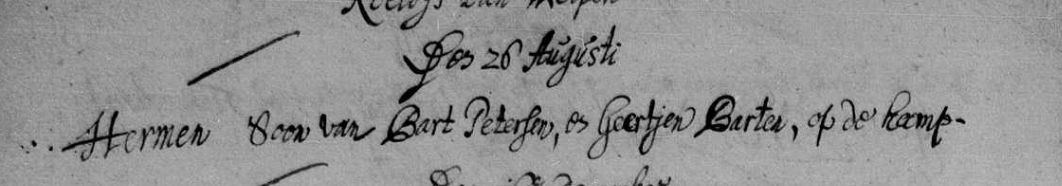 Den 26 Augusti
Hermen Soon van Bart Petersen, en Geertjen Barten, op de kamp-